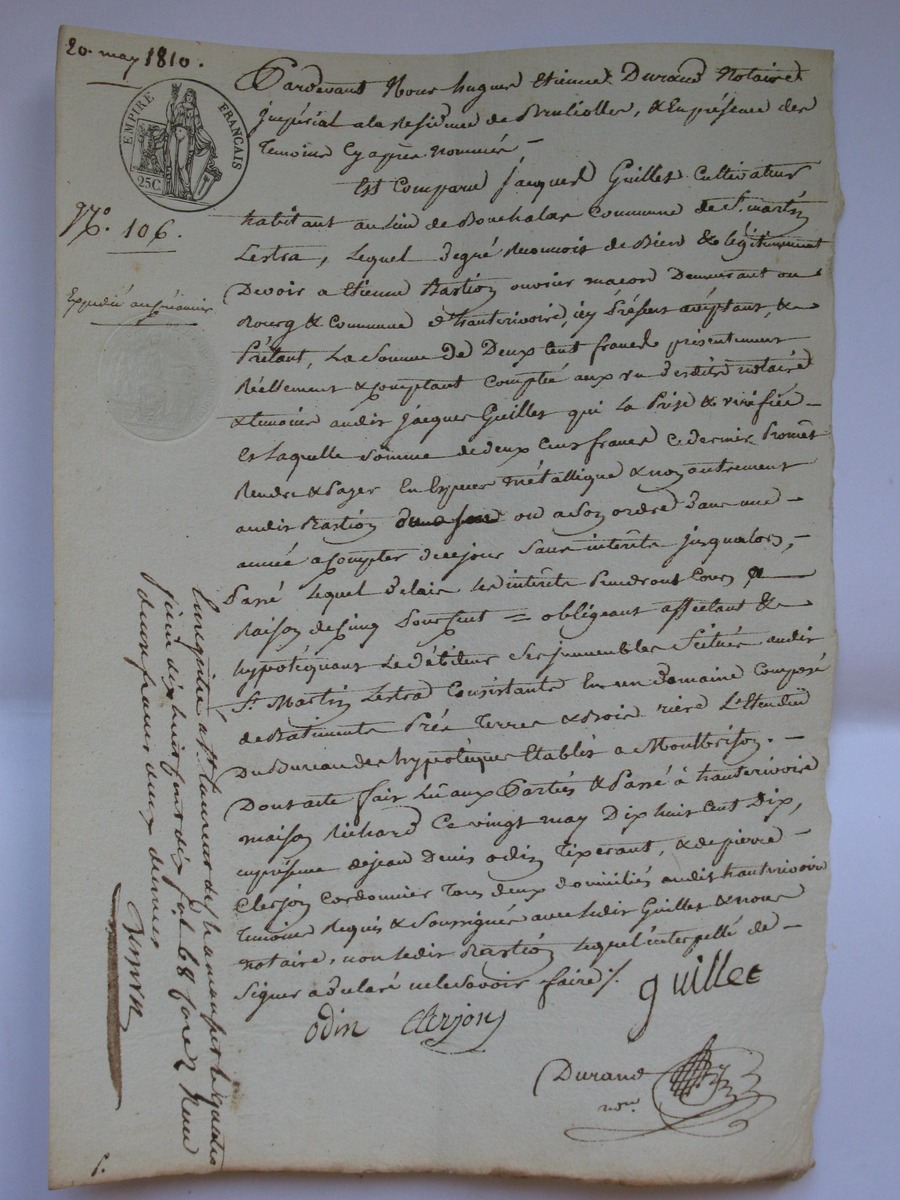 20. may 1810.
EMPIRE FRANÇAIS
25C
N.º 106.
Expédié au créancier
Pardevant Nous hugues Etienne Durand Notaire
impérial a la Residence de Brulliolles, & En présence des
Temoins Cy après nommés —
Est Comparu Jacques Guillet Cultivateur
habitant au lieu de Bouchalas Commune de St. martin
Lestra, lequel degré Reconnois de Bien & légitimement
Devoir a Etienne Bastion ouvrier maçon Demeurant au
Bourg & Commune d'hauterivoire, icy Présent acceptant, &
Prêtant, La Somme De Deux Cent francs présentement
Réellement & comptant Comptée aux vu desdits notaire
& temoins audit Jacques Guillet qui la Prise & vérifiée —
Et laquelle Somme de deux Cent francs ce dernier Promet
Rendre & Payer En Especes métallique & non autrement
audit Bastion ou a Son ordre dans une —
année a Compter de ce jour Sans interêts jusqualors, —
Passé lequel délais les interêts Prendront Cours a
Raison de Cinq Pour Cent = obligeant affectant &
hypotéquant Le débiteur Ses immeubles Scitués audit
St. Martin Lestra Consistants En un Domaine Composé
de Batiments Prés Terres & Bois rière L'Etendue
Du Bureau des hypotèques Etablis a Montbrison. —
Dont acte fait Lu aux Parties & Passé à hauterivoire
maison Richard Ce vingt may Dix huit Cent Dix,
en présence de jean Denis odin Tixerant, & de pierre —
Clerjon Cordonnier Tous deux domiciliés audit hauterivoire
Temoins Requis & Soussignés avec Ledit Guillet & nous
Notaire, non Ledit Bastion Lequel interpellé de —
Signer a declaré ne le Savoir faire ./.
odin Clerjon guillet
Durand
nore
Enregistré à St Laurent de Chamousset le quatre
juin dix huit cent dix fol. 68 Recu
deux francs deux decimes